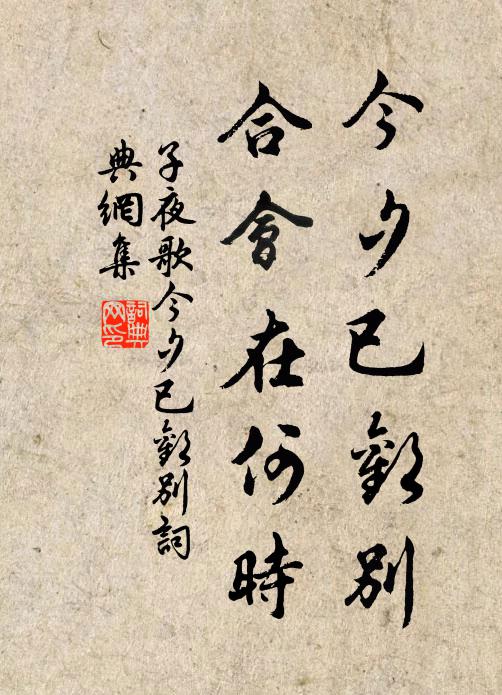 今夕已歡別
合會在何時
子夜歌今夕已歡別詞
典網集
詞典網印